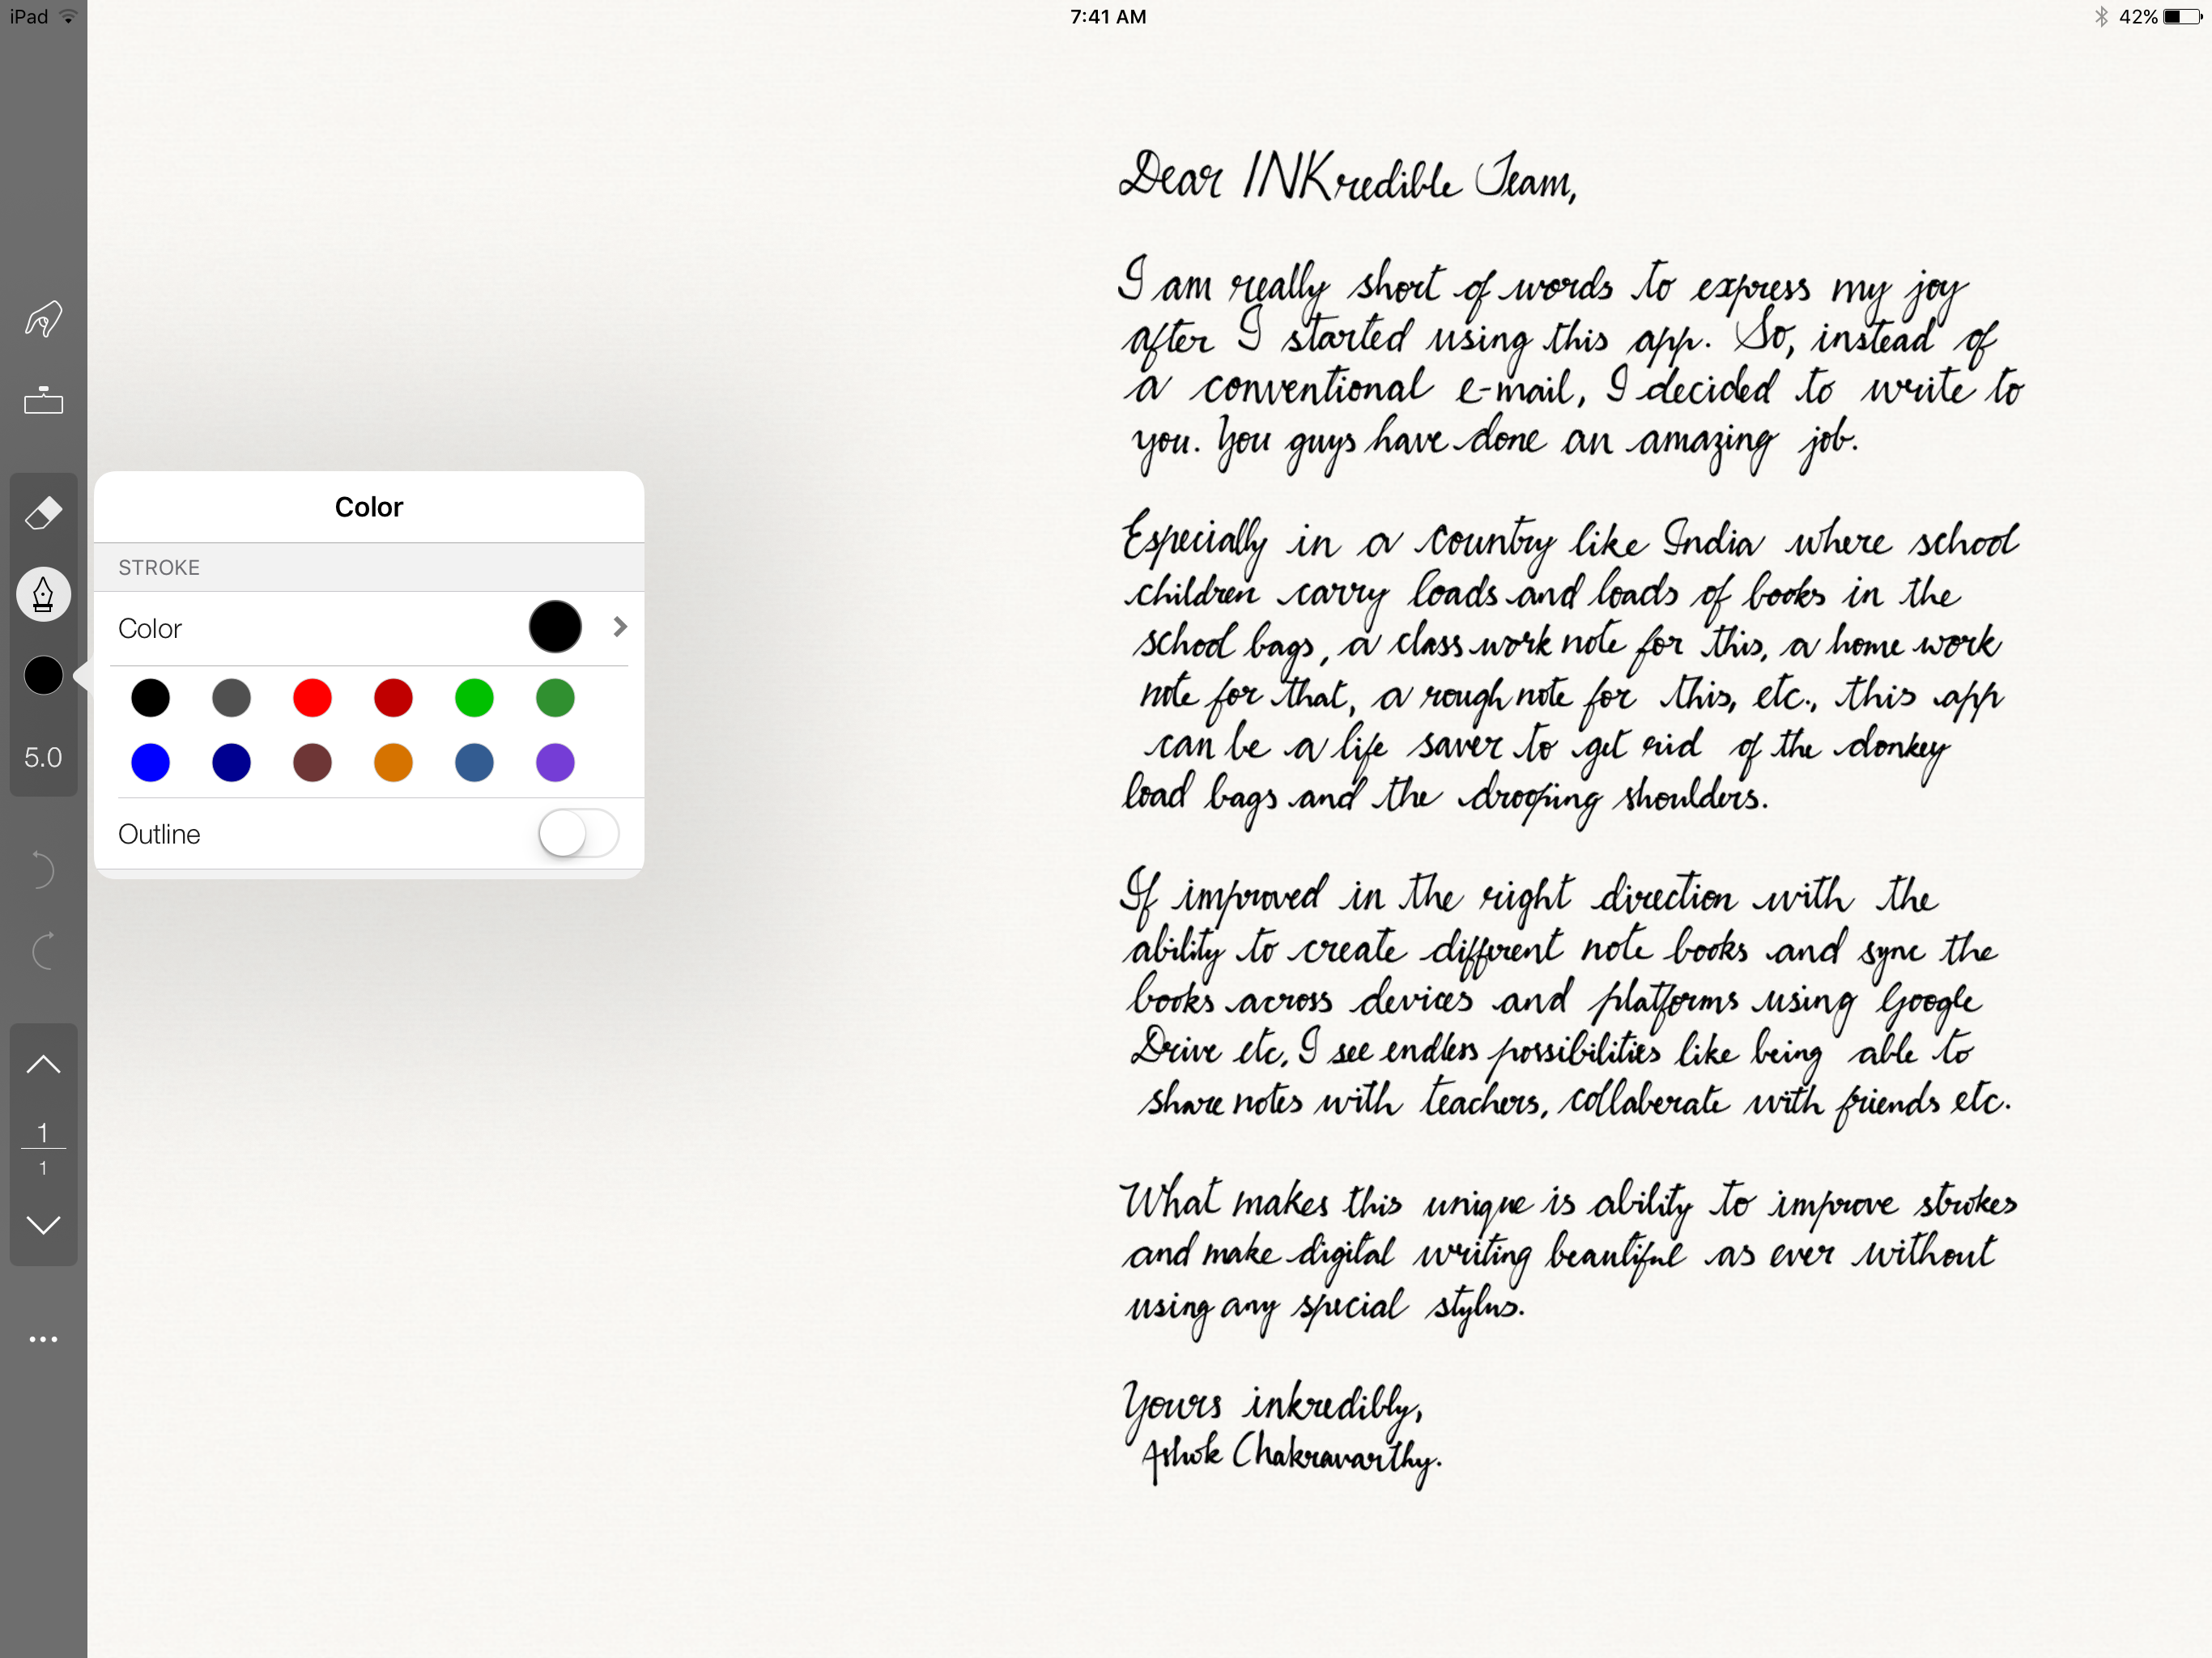 iPad
7:41 AM
42%
Color
STROKE
Color
Outline
5.0
1
1
Dear INKredible Team,
I am really short of words to express my joy
after I started using this app. So, instead of
a conventional e-mail, I decided to write to
you. You guys have done an amazing job.
Especially in a country like India where school
children carry loads and loads of books in the
school bags, a class work note for this, a home work
note for that, a rough note for this, etc., this app
can be a life saver to get rid of the donkey
load bags and the drooping shoulders.
If improved in the right direction with the
ability to create different note books and sync the
books across devices and platforms using Google
Drive etc, I see endless possibilities like being able to
share notes with teachers, collaberate with friends etc.
What makes this unique is ability to improve strokes
and make digital writing beautiful as ever without
using any special stylus.
Yours inkredibly,
Ashok Chakravarthy.